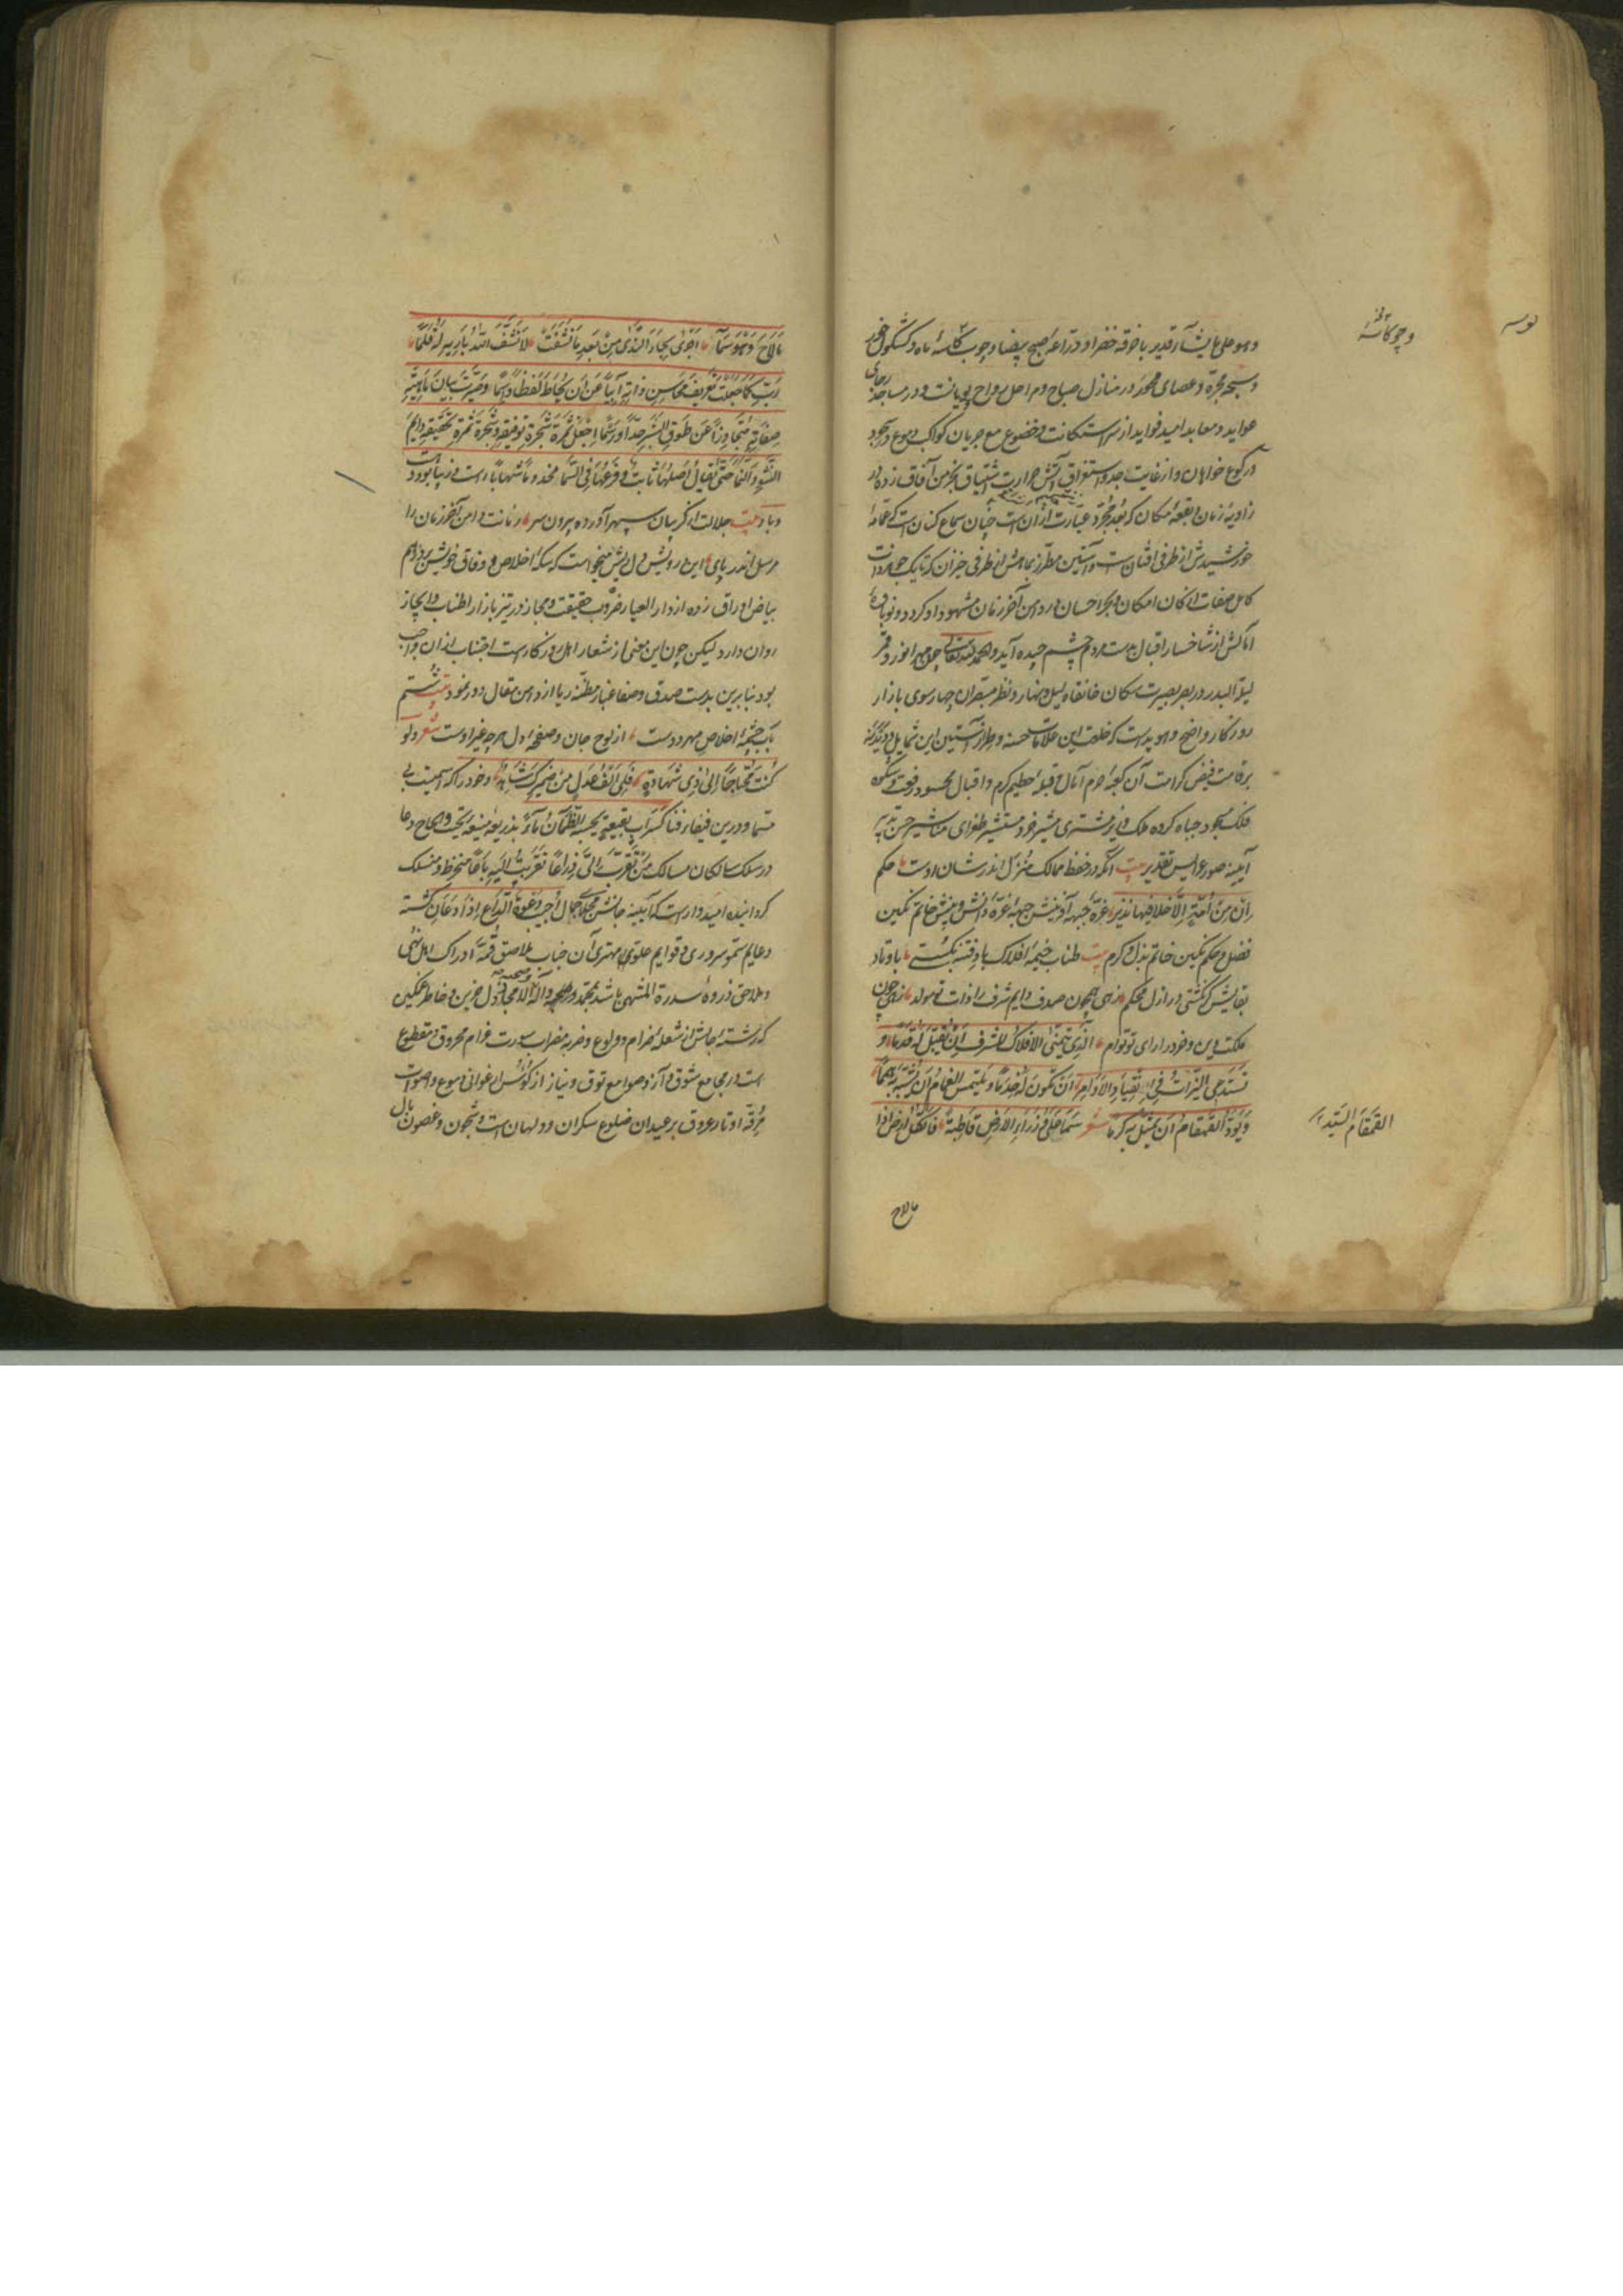 وهو علی ما یشآء قدیر با خرقه خضرا و دراعهٔ صبح بیضا و چوب کاسهٔ ماه و کشکول خور
و سبحه مجره و عصای محور در منازل صباح و مراحل رواح پویانست و در مساجد رجای
عواید و معابد امید فواید از سر استکانت و خضوع مع جریان کواکب دموع در سجود
و رکوع خواهان و از غایت جد و استغراق آتش حرارت اشتیاق بخرمن آفاق زده در
زاویهٔ زمان و بقعهٔ امکان که بعد مجرد عبارت ازان است چنان سماع کنان است که عمامهٔ
خورشیدش از طرفی افتان است و آستین مطرز بماهش از طرفی خیزان که تا یک
کامل صفات از کان امکان و بحر احسان در دامن آخر زمان مشهود او کردد و نوباوهٔ
از شاخسار اقبال بدست مردم چشم چیده آید والحمد لله تعالی چون مهر انور و قمر
لیلة البدر در بصر بصیرت سکان خانقاه لیل و نهار و نظر مبصران چهار سوی بازار
روزکار واضح و هویداست که خلعت این علامات حسنه و طراز آستین این شمایل
بر قامت فیض کرامت آن کعبهٔ حرم آمال و قبلهٔ حطیم کرم و اقبال محسود رفعت و شکوه
فلک مسجود جباه کروه ملک وزیر مشتری مشیر خورد مستشیر طغرای مناشیر حسن تدبیر
آیینه صور عرایس تقدیر بیت انکه در حفظ ممالک منزل اندر شان اوست حکم
ان من امة الا خلا فیها نذیر غرهٔ جبهه آفرینش جبههٔ غرهٔ دانش و بینش خاتم نکین
فضل و حکم نکین خاتم بذل و کرم بیت طناب خیمهٔ افلاک باد فتنه بکستی باوتاد
بقایش کر نکشتی در ازل محکم زهی همچون صدف دایم شرف را ذات تو مولد زهی چون
ملکت و دین و خرد را رای تو توام الذی تتمنی الافلاک لشرف ان تقبل له قدما و
تستدعی التراث فی الانقیاد والاوامر ان تکون له خدما و یلتمس الغمام ان تشبه به همما
ویود القمقام ان یمثل به کرما شعر سما علی وزراء الارض قاطبة فالکل ارض اذا
و چون کاسهٔ
القمقام السید
ما لاح
ما لاح وهو سمآ اجری بحار الندی من بعد ما نشفت لا نشف الله بارییه له قلما
رب کما جعلت تعریف محاسن ذاته آبیا عن ان یحاط لفظا و بما وصیرت بیان ماهیة
صفاته متجاوزا عن طوق البشر حدا و رسما اجعل ثمرة شجرة توفیقه و شجرة ثمرة تحقیقه دایم
النشو والنما حتی یقال اصلها ثابت و فرعها فی السما مخدوما شنهارا راست و زیبا بود دوست
و باد بیت جلالت از کریبان سپهر آورده بیرون سر زمانت دامن آخر زمان را
مرسل اندر پای این درویش دل ریش میخواست که سکهٔ اخلاص و وفاق خویش بر درهم
بیاض اوراق زده از دار العیار ضروب حقیقت و مجاز در تیز بازار اطناب و ایجاز
روان دارد لیکن چون این معنی از شعار اهل روزکار است اجتناب ازان واجب
بود بنابرین بدست صدق و صفا غبار مظنهٔ ریا از دامن مقال دور نمود بیت شستم
بآب چشمهٔ اخلاص مهر دوست از لوح جان و صفحهٔ دل هرچه غیر اوست شعر ولو
کنت محتاجا الی ذی شهادة فلی الف عدل من ضمیرک شاهد وخود را که اسمیست بی
مسما و درین فیفاء فنا کسراب بقیعة یحسبه الظمآن مآء بذریعهٔ منیعهٔ تحیت و الحاح دعا
در سلک سالکان مسالک من تقرب الی ذراعا تقربت الیه باعا منخرط و منسلک
کردانیده امیدوار است که آیینه جانش مجلای جمال اجیب دعوة الداع اذا دعان کشته
دعایم سمو سروری و قوایم علو مهتری آن جناب ملاصق قمهٔ ادراک اهل نهی
و ملاحق ذروهٔ سدرة المنتهی باشد بمحمد و صحبه و آله الامجاد دل حزین و خاطر غمکین
که رشتهٔ جانش از شعلهٔ ضرام و ولوع و ضربهٔ مضراب سورت غرام محروق و مقطوع
است در مجامع شوق و آز و صوامع توق و نیاز از کؤوس ارغوانی دموع و اصوات
مرقه اوتار عروق بر عیدان ضلوع سکران و ولهان است و شجون و غصون بال